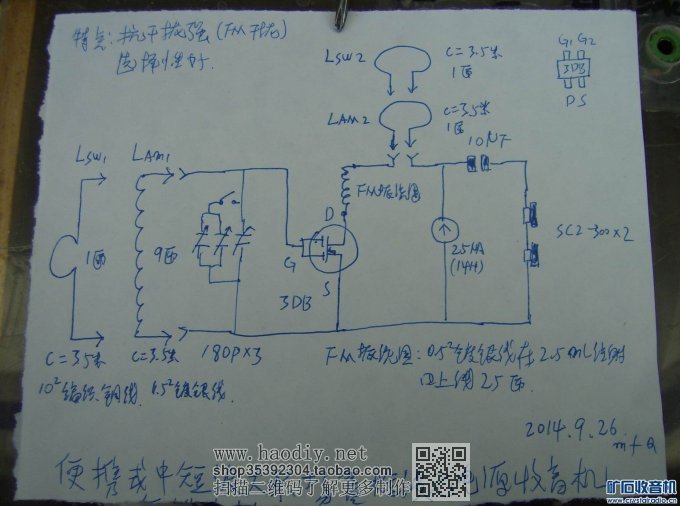 特点：抗干扰强(FM干扰)
选择性好.
LSW2
C=3.5米
1匝
G1 G2
3DB
D S
LAM2
C=3.5米
1匝
10μF
LSW1
LAM1
FM扼流圈
1匝
9匝
D
G
S
3DB
25μA
(14H)
SC2-300×2
C=3.5米
C=3.5米
180P×3
FM扼流圈：0.5²镀银线在2.5mL注射
10²编织铜线.
1.5²镀银线.
上绕25匝.
2014.9.26
www.haodiy.net
shop35392304.taobao.com
扫描二维码了解更多制作
便携式中短
源收音机
矿石收音机
www.crystalradio.cn